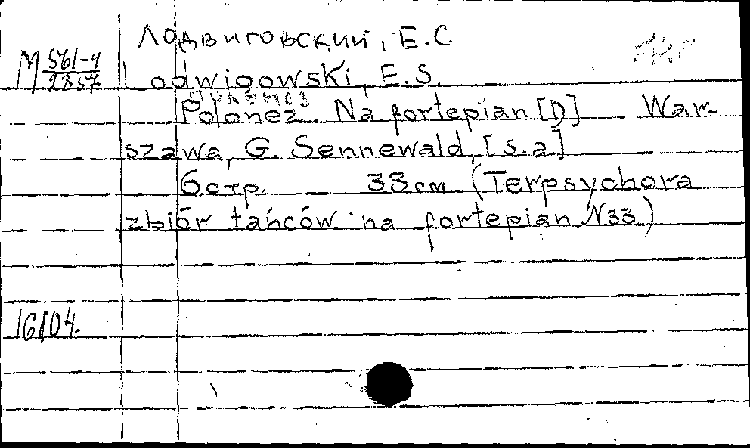 Лодвиговский, Е.С
М 561-4
2857
Lodwigowski, E.S.
Polonez. Na fortepian [D] War-
szawa, G. Sennewald, [s.a]
6 стр. 33 см (Terpsychora
zbiór tańców na fortepian N33)
16104.